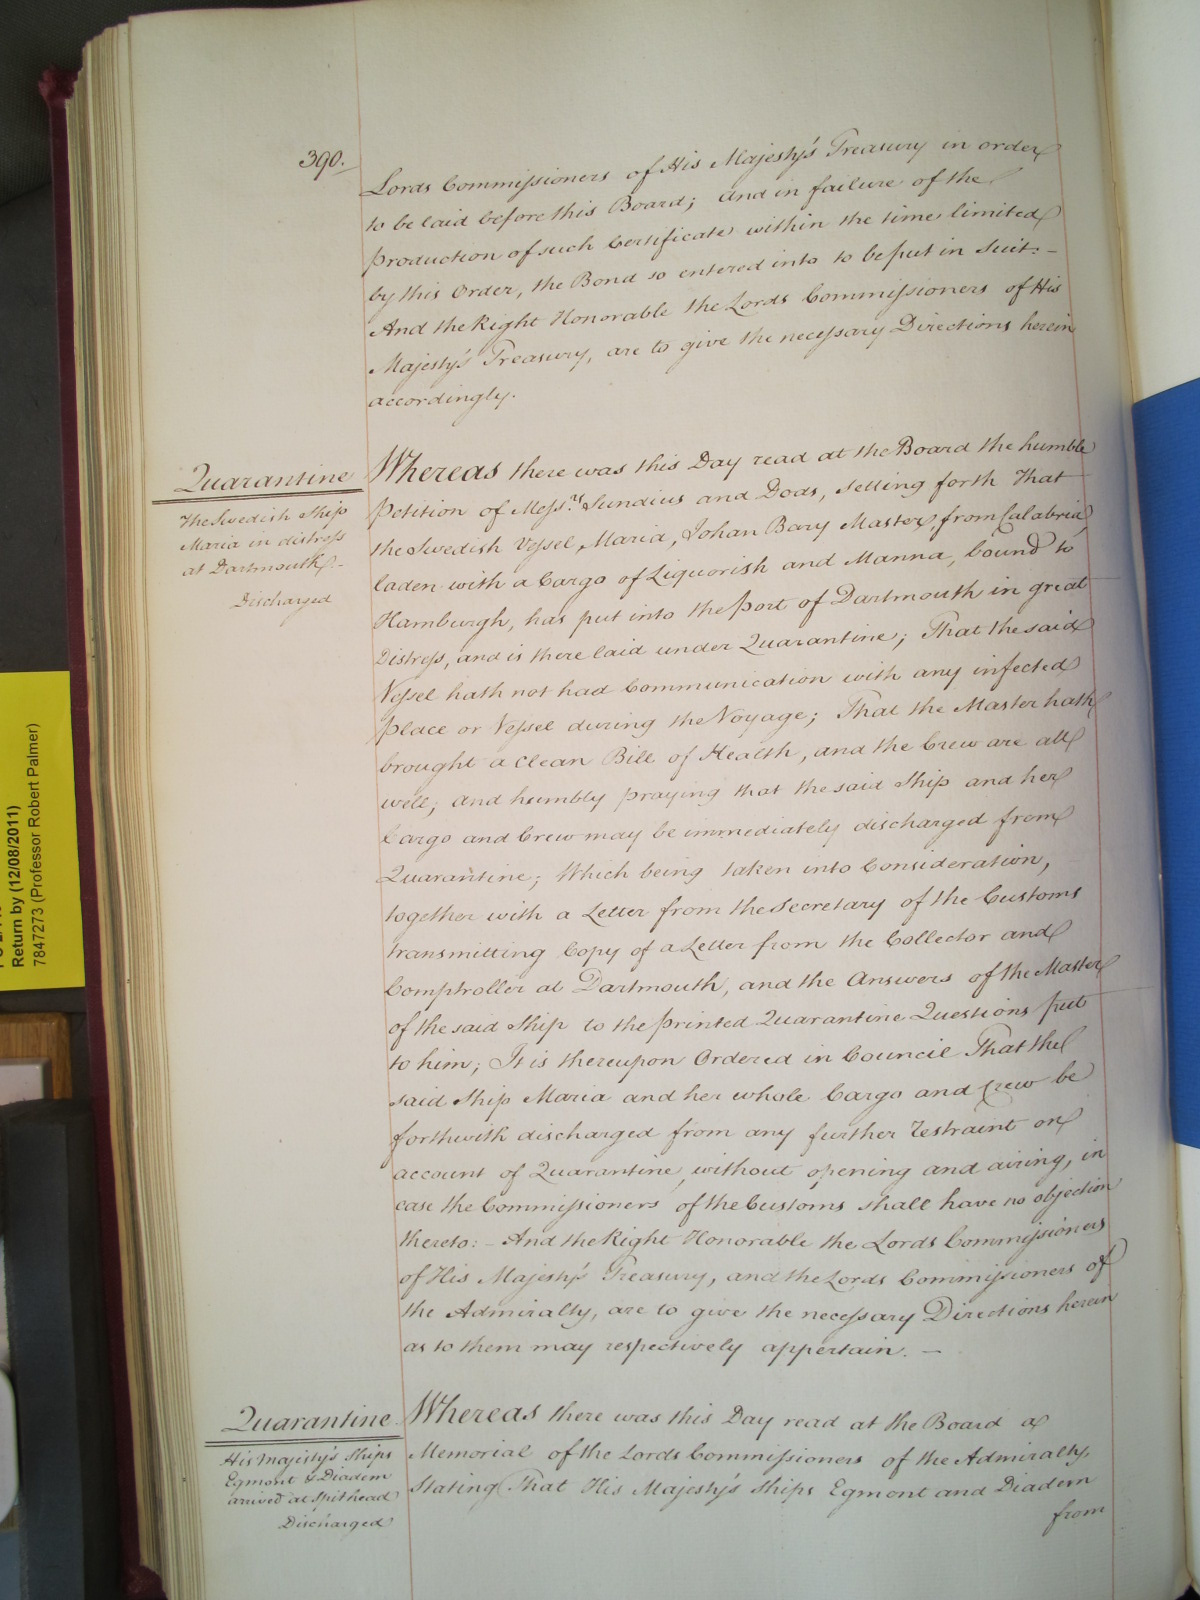 390.
Lords Commissioners of His Majesty's Treasury in order
to be laid before this Board; And in failure of the
production of such Certificate within the time limited
by this Order, the Bond so entered into to be put in Suit: -
And the Right Honorable the Lords Commissioners of His
Majesty's Treasury, are to give the necessary Directions herein
accordingly.
Quarantine
The Swedish Ship
Maria in distress
at Dartmouth -
Discharged
Whereas there was this Day read at the Board the humble
Petition of Mess.rs Sundius and Dods, setting forth That
the Swedish Vessel, Maria, Johan Bary Master, from Calabria,
laden with a Cargo of Liquorish and Manna, bound to
Hamburgh, has put into the port of Dartmouth in great
Distress, and is there laid under Quarantine; That the said
Vessel hath not had Communication with any infected
place or Vessel during the Voyage; That the Master hath
brought a Clean Bill of Health, and the Crew are all
well; and humbly praying that the said Ship and her
Cargo and Crew may be immediately discharged from
Quarantine; Which being taken into Consideration,
together with a Letter from the Secretary of the Customs
transmitting Copy of a Letter from the Collector and
Comptroller at Dartmouth, and the Answers of the Master
of the said Ship to the printed Quarantine Questions put
to him; It is thereupon Ordered in Council That the
said Ship Maria and her whole Cargo and Crew be
forthwith discharged from any further restraint on
account of Quarantine, without opening and airing, in
case the Commissioners of the Customs shall have no objection
thereto: - And the Right Honorable the Lords Commissioners
of His Majesty's Treasury, and the Lords Commissioners of
the Admiralty, are to give the necessary Directions herein
as to them may respectively appertain. -
Quarantine
His Majesty's Ships
Egmont & Diadem
arrived at Spithead
Discharged
Whereas there was this Day read at the Board a
Memorial of the Lords Commissioners of the Admiralty,
Stating That His Majesty's Ships Egmont and Diadem
from
Return by (12/08/2011)
7847273 (Professor Robert Palmer)